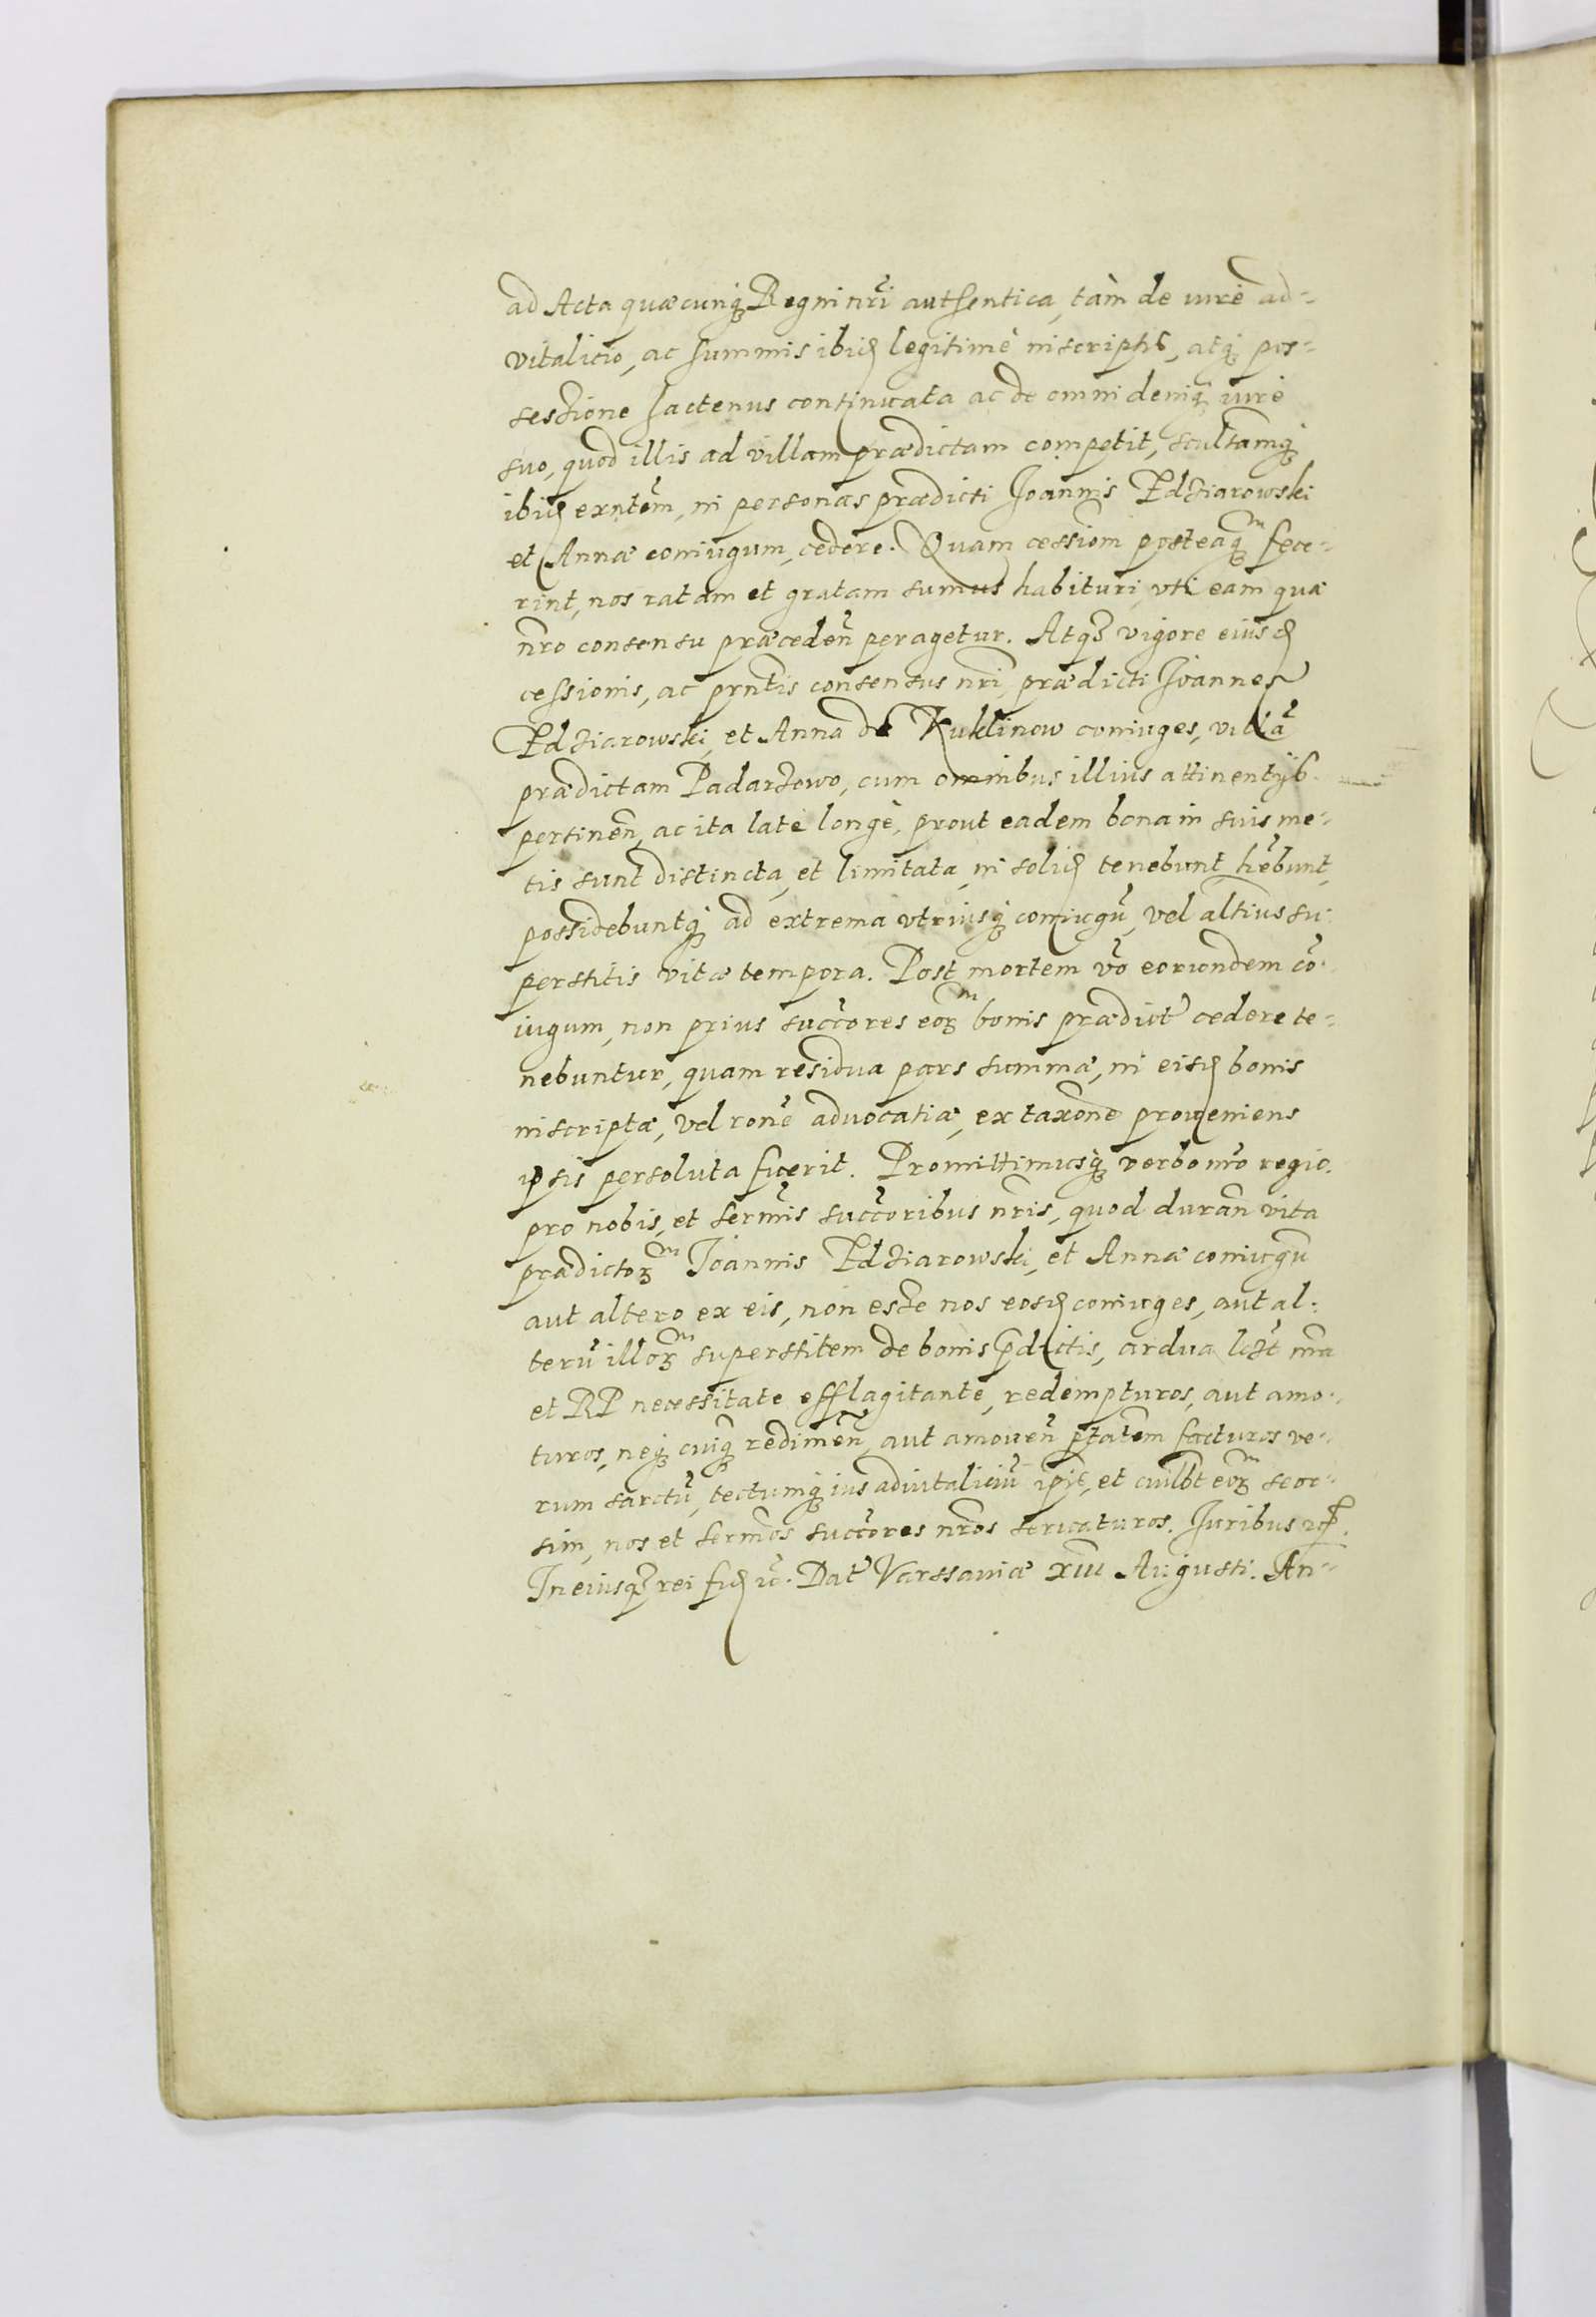 ad Acta quæcunq; Regni nr̃i authentica, tàm de iurè ad-
vitalicio, ac summis ibid legitimè inscriptis, atq; pos-
sessione hactenus continuata ac de omni deniq; iurè
suo, quod illis ad villam prædictam competit, scultæmq;
ibid exñtem, in personas prædicti Joannis Zdziarowski
et Annæ coniugum, cedere. Quam cession̄ posteaq;m fece-
rint, nos ratam et gratam sumus habituri, vti eam quæ
nr̃o consensu præceden̄ peragetur. Atq; vigore eiusd
cessionis, ac pr̃ntis consensus nr̃i, prædicti Joannes
Zdziarowski, et Anna de Kuklinow coniuges, villã
prædictam Padarzewo, cum omnibus illius attinentijs
pertinen̄, ac ita latè longè, prout eadem bona in suis me-
tis sunt distincta, et limitata, in solid tenebunt, hẽbunt,
possidebuntq; ad extrema vtriusq; coniugũ, vel altius su-
perstitis vitæ tempora. Post mortem võ eorundem cõ-
iugum, non prius succores eorm bonis prædict̃ cedere te-
nebuntur, quam residua pars summæ, in eisd bonis
inscriptæ, vel ronẽ advocatiæ, ex taxone proueniens
ipsis persoluta fuerit. Promittimusq; verbo nr̃o regio.
pro nobis, et sermis succoribus nr̃is, quod duran̄ vita
prædictorm Joannis Zdziarowski, et Annæ coniugũ
aut altero ex eis, non esse nos eosd coniuges, aut al-
terũ illorm superstitem de bonis p̃dictis, ardua licet nr̃a
et RP necessitate efflagitante, redempturos, aut amo-
turos, neq; cuiq; redimen̄, aut amouen̄ ptãtem facturos ve-
rum sarctũ, tectumq; ius aduitaliciũ ips̃, et cuilbt eorm seor-
sim, nos et sermos succores nr̃os seruaturos. Juribus
In eiusq; rei fid. Dat̃ Varssaviæ Augusti. An-